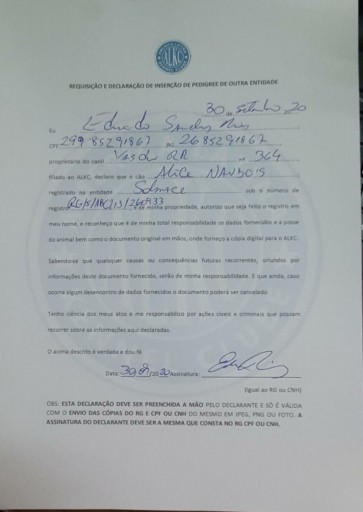 ALKC
REQUISIÇÃO E DECLARAÇÃO DE INSERÇÃO DE PEDIGREE DE OUTRA ENTIDADE
30 de setembro 20
Eu
CPF RG 268529186
proprietário do canil nº 364
filiado ao ALKC, declaro que o cão Alice
registrado na entidade Sobraci sob o número de
registro é de minha propriedade, autorizo que seja feito o registro em
meu nome, e reconheço que é de minha total responsabilidade os dados fornecidos e a posse
do animal bem como o documento original em mãos, onde forneço a cópia digital para o ALKC.
Sabendo-se que quaisquer causas ou consequências futuras recorrentes, oriundos por
informações deste documento fornecido, serão de minha responsabilidade. E que ainda, caso
ocorra algum desencontro de dados fornecidos o documento poderá ser cancelado.
Tenho ciência dos meus atos e me responsabilizo por ações cíveis e criminais que possam
recorrer sobre as informações aqui declaradas.
O acima descrito é verdade e dou fé.
Data: 30/09/2020 Assinatura:
(Igual ao RG ou CNH)
OBS: ESTA DECLARAÇÃO DEVE SER PREENCHIDA A MÃO PELO DECLARANTE E SÓ É VÁLIDA
COM O ENVIO DAS CÓPIAS DO RG E CPF OU CNH DO MESMO EM JPEG, PNG OU FOTO. A
ASSINATURA DO DECLARANTE DEVE SER A MESMA QUE CONSTA NO RG CPF OU CNH.